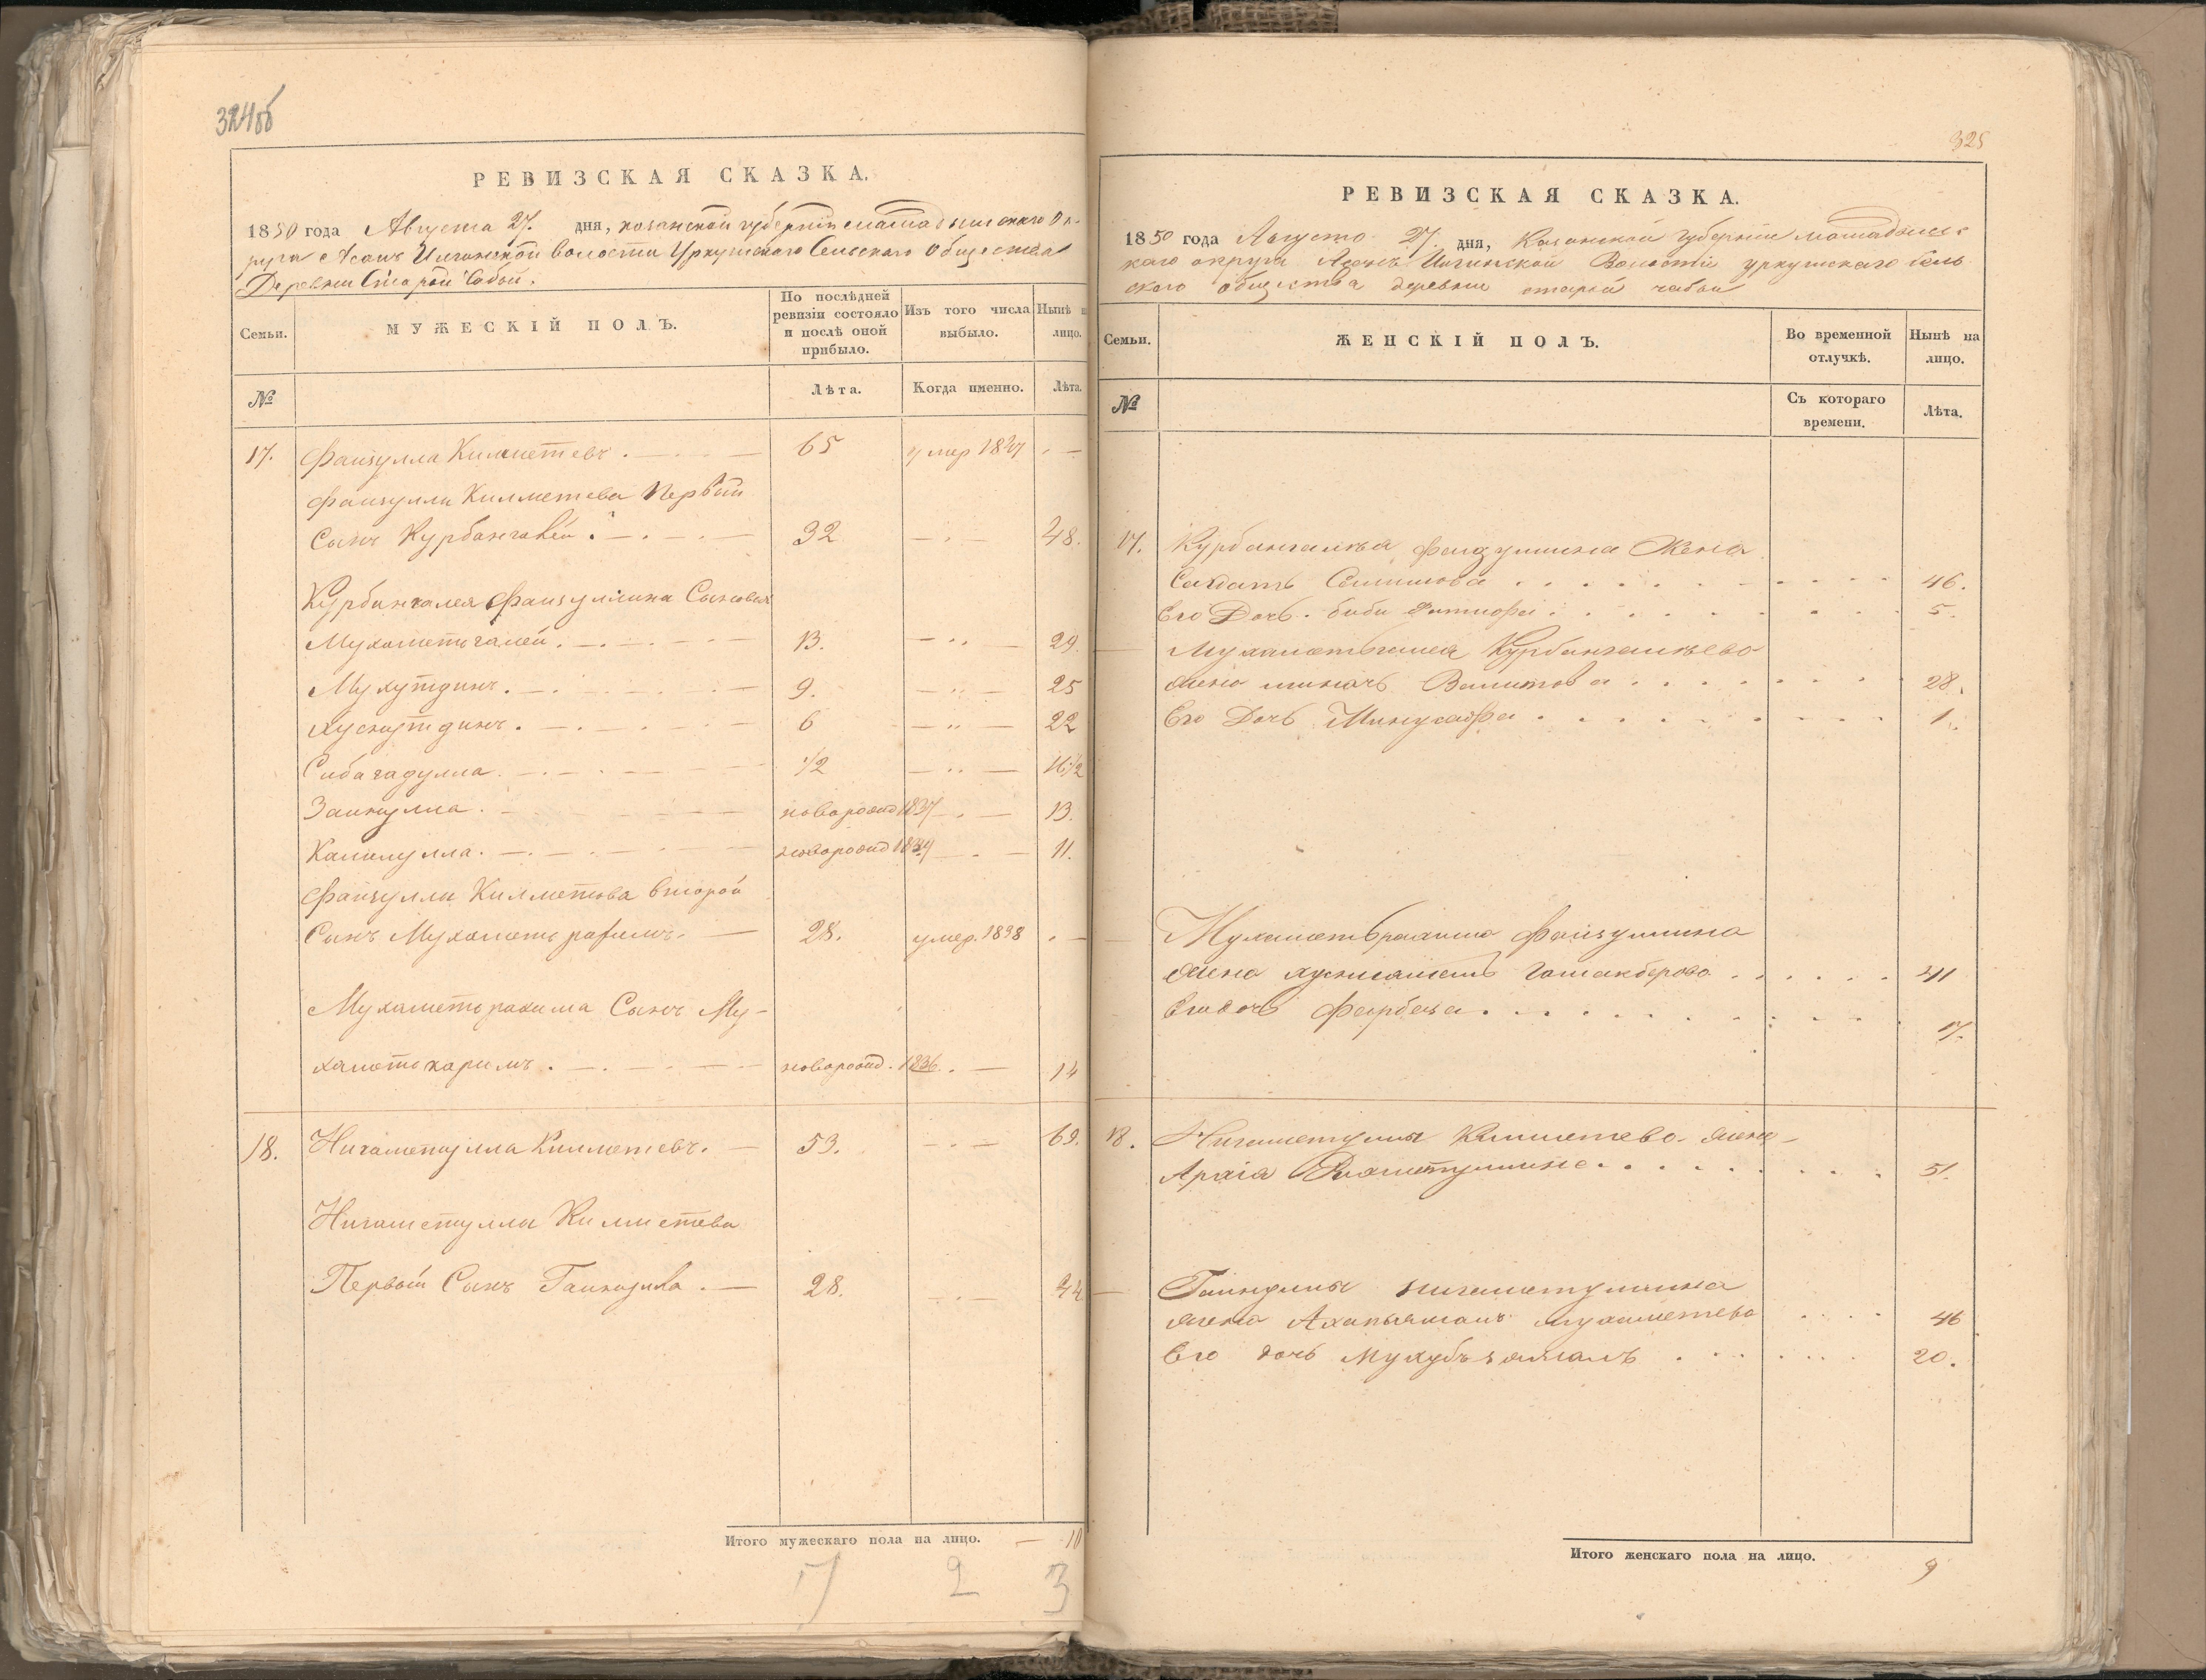 324об
РЕВИЗСКАЯ СКАЗКА.
1850 года Августа 27. дня, казанской губернии мамадышскаго Ок-
руга Волости Уркушскаго Сельскаго Общества
Деревни Старой
Семьи.
МУЖЕСКІЙ ПОЛЪ.
По послѣдней ревизіи состояло и послѣ оной прибыло.
Изъ того числа выбыло.
Нынѣ н лицо.
№
Лѣта.
Когда именно.
Лѣта.
17. Файзулла Килметевъ. 65 умер
Файзуллы Килметева Первый
Сынъ Курбангалей. 32 48.
Курбангалея Файзуллина Сыновья
Мухаметьгалей. 13. 29
Мухутдинъ. 9. 25
Хуснутдинъ. 6 22
Сибагадулла. 1/2 16 1/2
Зайнулла. новорожд 1837 13.
Камулла. новорожд 1839 11.
Файзуллы Килметова второй
Сынъ Мухаметь рахимъ. 28. умер. 1838
Мухаметь рахима Сынъ Му-
хаметь каримъ. новорожд. 1836. 14
18. Нигаметулла Килметевъ. 53. 69.
Нигаметуллы Килметева
Первый Сынъ Гайнулла. 28. 44
Итого мужескаго пола на лицо. 10
7 2 3
325
РЕВИЗСКАЯ СКАЗКА.
1850 года Августа 27. дня, Казанской губернии мамадышс
каго округа Волости уркушскаго сель
скаго общества деревни старой
Семьи.
ЖЕНСКІЙ ПОЛЪ.
Во временной отлучкѣ.
Нынѣ на лицо.
№
Съ котораго времени.
Лѣта.
17. Курбангалѣя файзуллина Жена
46.
Его Дочь. биби 5.
Мухаметьгалея Курбангалѣева
жена Валитова 28.
Его Дочь 1.
Мухаметьрахима Файзуллина
жена 41
Его дочь 17.
18. Нигаметуллы Килметева жена
51.
Гайнуллы нигаметуллина
жена мухаметева 46
Его дочь 20.
Итого женскаго пола на лицо. 9